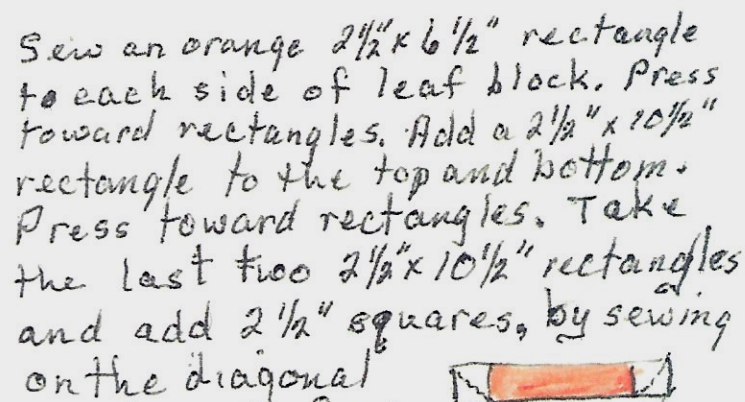 Sew an orange 2½"x 6½" rectangle
to each side of leaf block. Press
toward rectangles. Add a 2½"x 10½"
rectangle to the top and bottom.
Press toward rectangles. Take
the last two 2½"x 10½" rectangles
and add 2½" squares, by sewing
on the diagonal